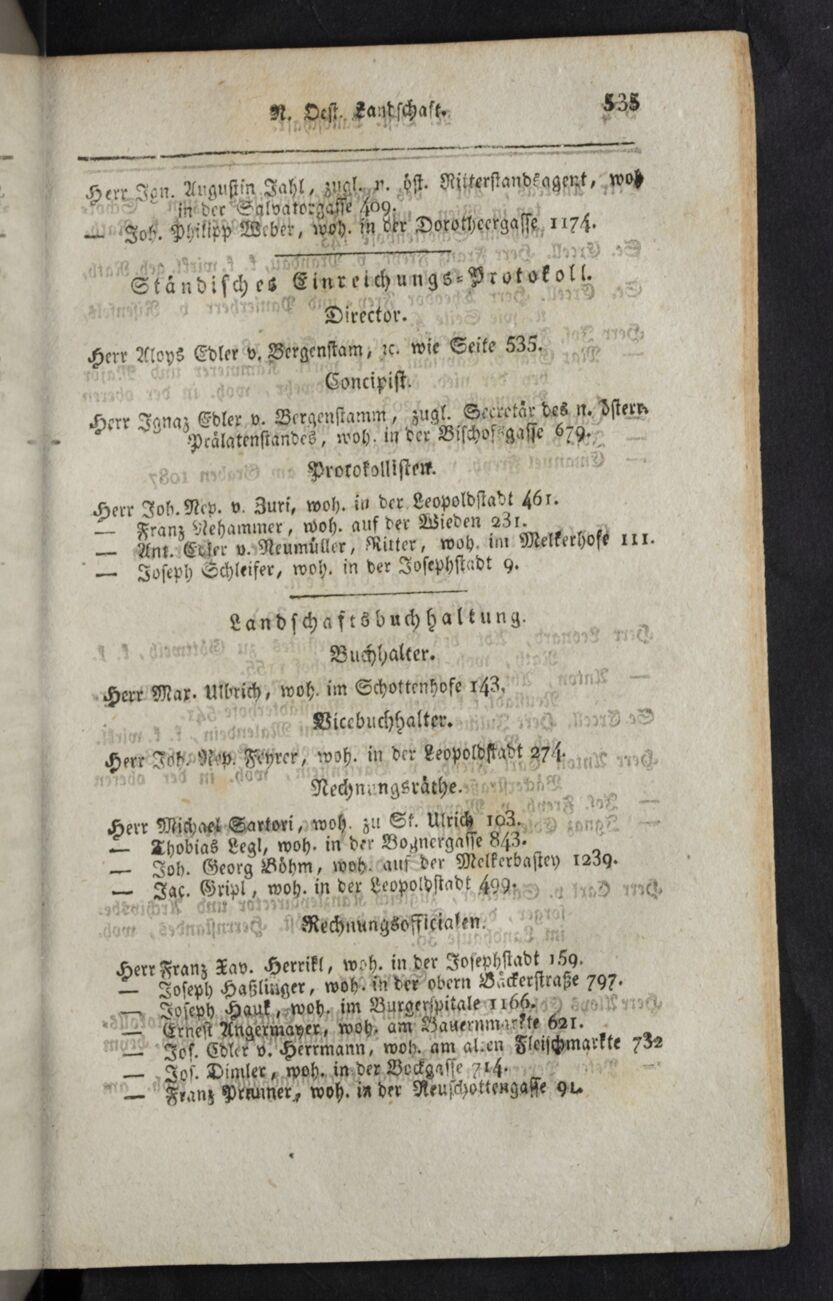 N. Oest. Landschaft. 535
Herr Ign. Augustin Jahl, zugl. n. öst. Ritterstandsagent, woh
in der Salvatorgasse 409.
— Joh. Philipp Weber, woh. in der Dorotheergasse 1174.
Ständisches Einreichungs-Protokoll.
Director.
Herr Aloys Edler v. Bergenstam, ꝛc. wie Seite 535.
Concipist.
Herr Ignaz Edler v. Bergenstamm, zugl. Secretär des n. östern
Prälatenstandes, woh. in der Bischofsgasse 679.
Protokollisten.
Herr Joh. Nep. v. Zuri, woh. in der Leopoldstadt 461.
— Franz Nehammer, woh. auf der Wieden 231.
— Ant. Edler v. Neumüller, Ritter, woh. im Melkerhofe 111.
— Joseph Schleifer, woh. in der Josephstadt 9.
Landschaftsbuchhaltung.
Buchhalter.
Herr Max. Ulbrich, woh. im Schottenhofe 143.
Vicebuchhalter.
Herr Joh. Nep. Feyrer, woh. in der Leopoldstadt 274.
Rechnungsräthe.
Herr Michael Sartori, woh. zu St. Ulrich 103.
— Thobias Legl, woh. in der Bognergasse 843.
— Joh. Georg Böhm, woh. auf der Melkerbastey 1239.
— Jac. Gripl, woh. in der Leopoldstadt 499.
Rechnungsofficialen.
Herr Franz Xav. Herrikl, woh. in der Josephstadt 159.
— Joseph Haßlinger, woh. in der obern Bäckerstraße 797.
— Joseph Hauk, woh. im Burgerspitale 1166.
— Ernest Angermayer, woh. am Bauernmarkte 621.
— Jos. Edler v. Herrmann, woh. am alten Fleischmarkte 732
— Jos. Dimler, woh. in der Bockgasse 714.
— Franz Prunner, woh. in der Neuschottengasse 91.